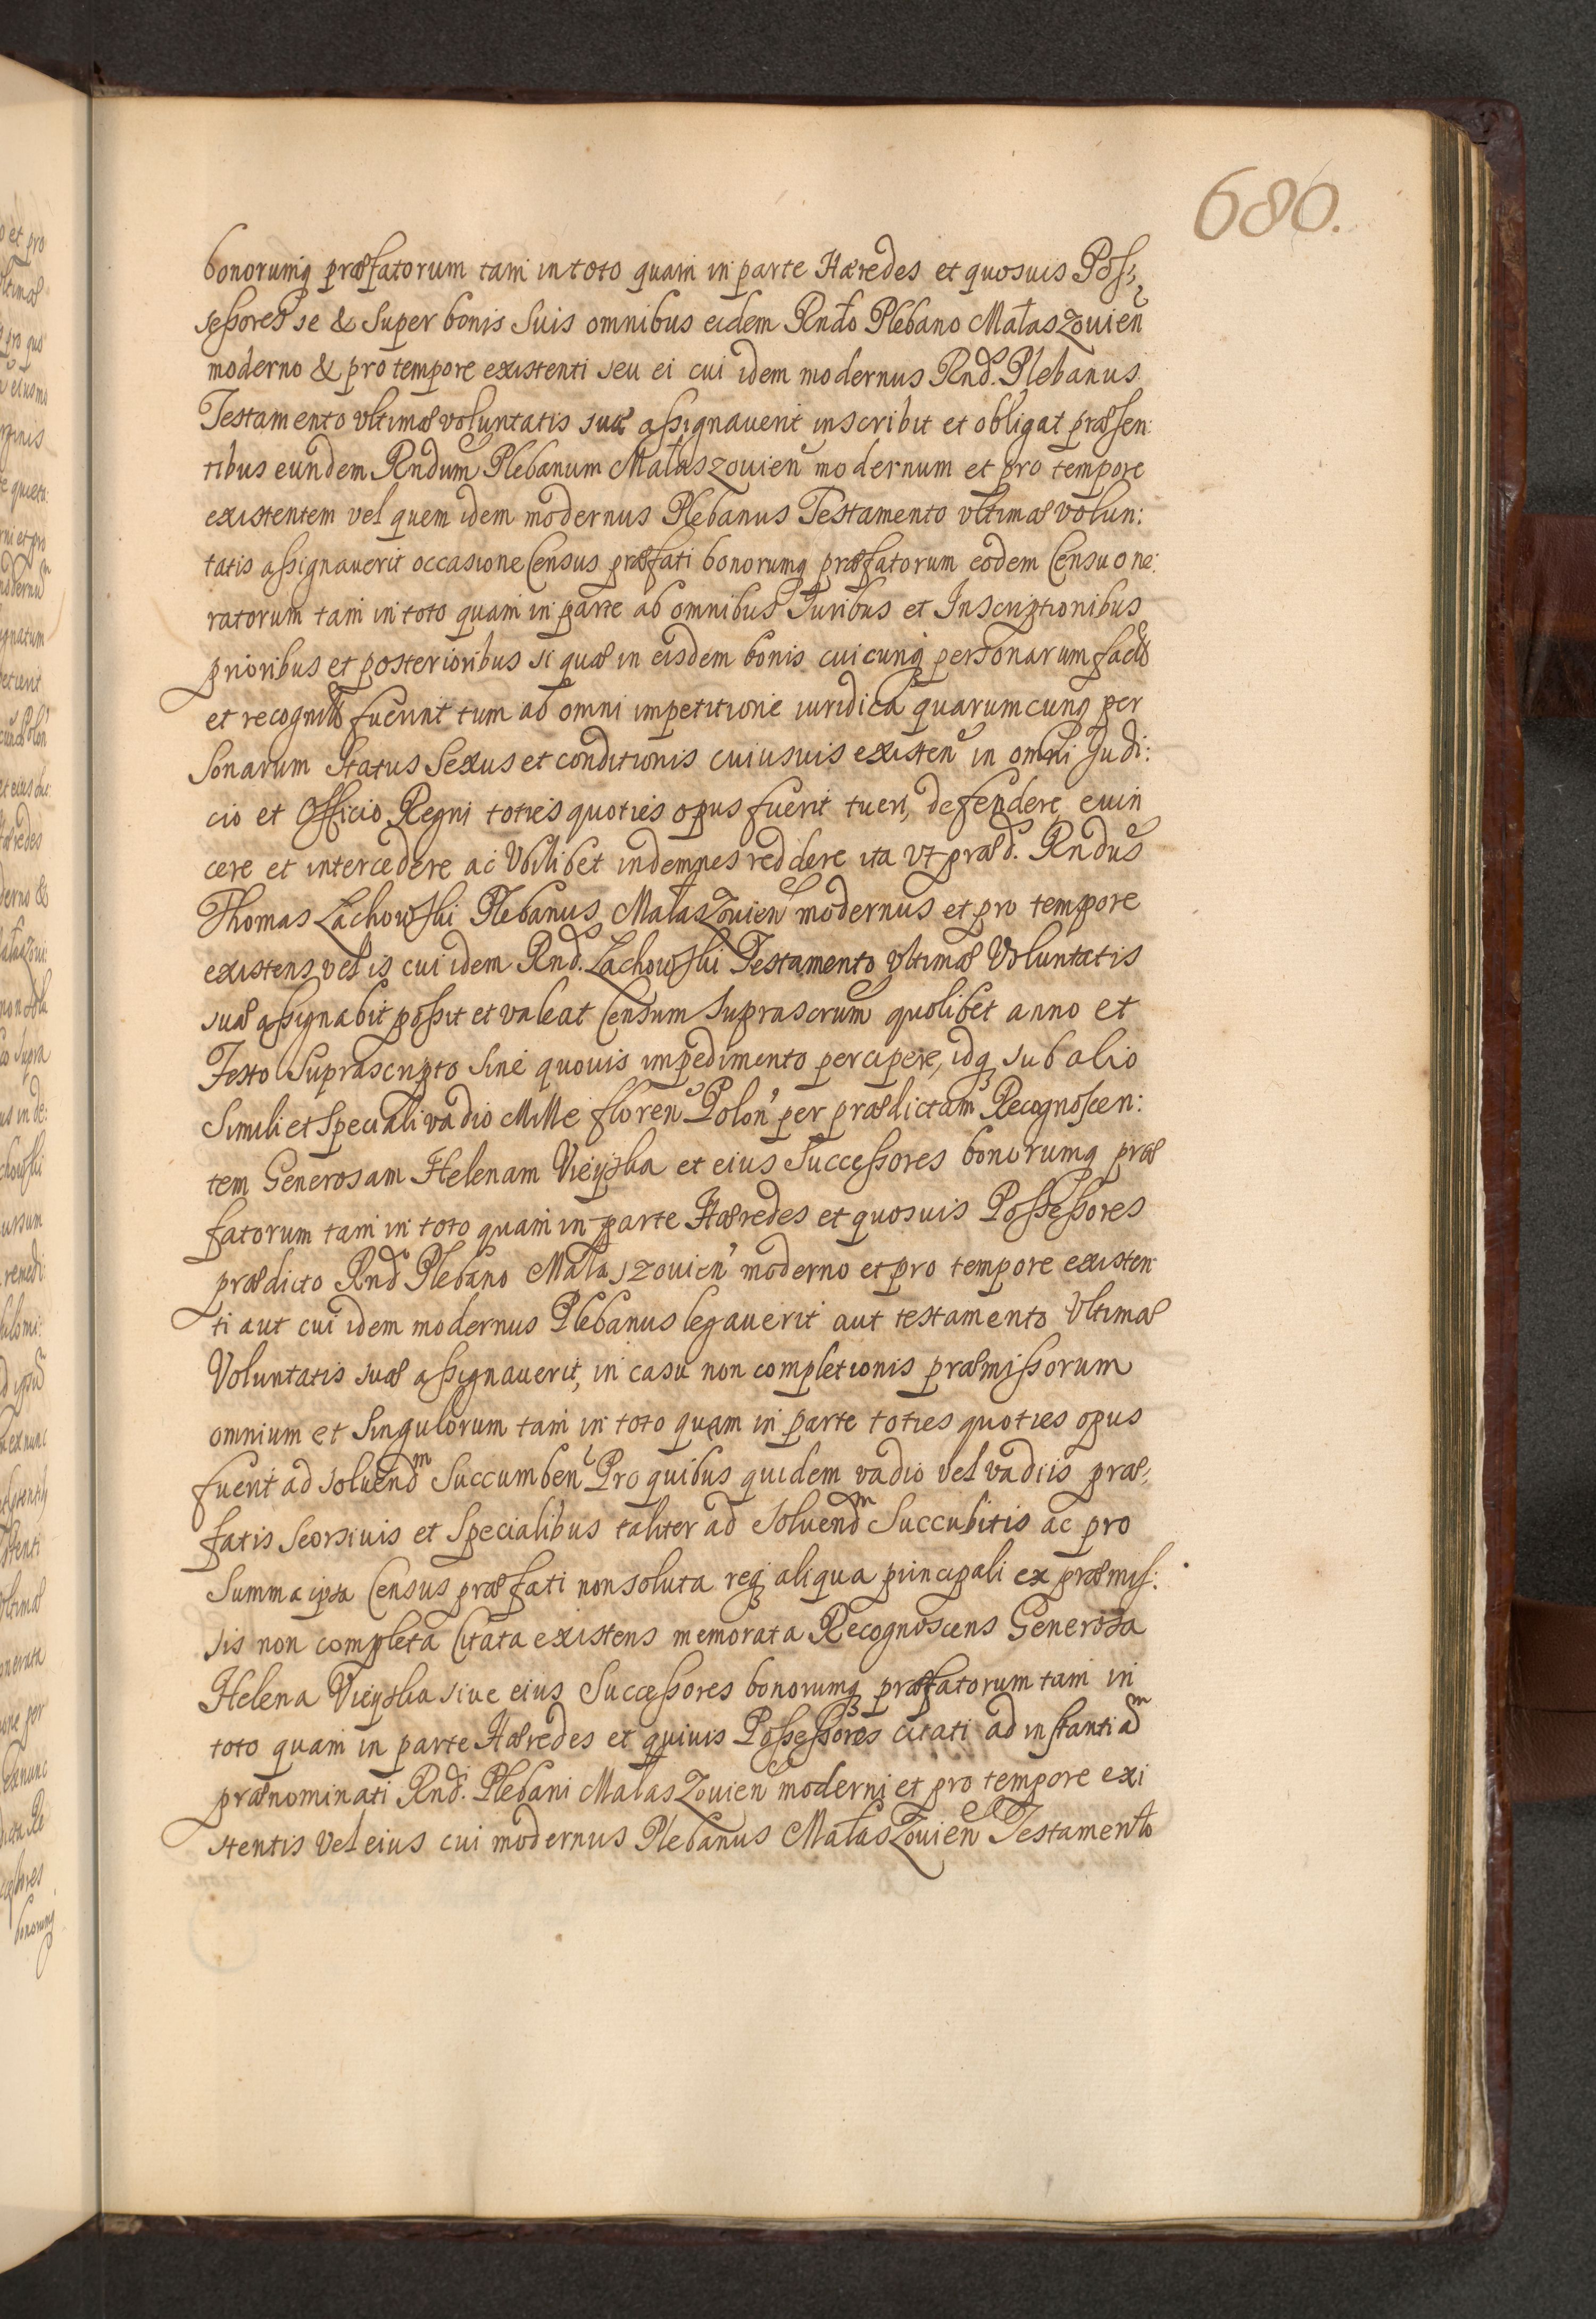 680.
bonorumq præfatorum tam in toto quam in parte Hæredes et quosuis Pos:
sessores se & super bonis suis omnibus eidem Rndo Plebano Małaszouien
moderno & pro tempore existenti seu ei cui idem modernus Rnd. Plebanus
Testamento vltimæ voluntatis suæ assignauerit inscribit et obligat præsen:
tibus eundem Rndum Plebanum Małaszouien modernum et pro tempore
existentem vel quem idem modernus Plebanus Testamento vltimæ volun:
tatis assignauerit occasione Census præfati bonorumq præfatorum eodem Censu one:
ratorum tam in toto quam in parte ab omnibus Iuribus et Inscriptionibus
prioribus et posterioribus si quæ in eisdem bonis cuicunq personarum factæ
et recognitæ fuerint tum ab omni impetitione iuridica quarumcunq per
sonarum status sexus et conditionis cuiusuis existen in omni Judi:
cio et Officio Regni toties quoties opus fuerit tueri, defendere, euin
cere et intercedere ac Vbilibet indemnes reddere ita vt præd. Rndus
Thomas Lachowski Plebanus Małaszouien modernus et pro tempore
existens vel is cui idem Rnd. Lachowski Testamento vltimæ Voluntatis
suæ assignabit possit et valeat Censum suprascrum quolibet anno et
Festo suprascripto sine quouis impedimento percipere, idq sub alio
simili et speciali vadio Mille floren Polon per prædictam Recognoscen:
tem Generosam Helenam Vieyska et eius Successores bonorumq præ
fatorum tam in toto quam in parte Hæredes et quosuis Possessores
prædicto Rnd Plebano Małaszouien moderno et pro tempore existen
ti aut cui idem modernus Plebanus legauerit aut testamento Vltimæ
Voluntatis suæ assignauerit, in casu non completionis præmissorum
omnium et singulorum tam in toto quam in parte toties quoties opus
fuerit ad soluendm succumben Pro quibus quidem vadio vel vadiis præ:
fatis seorsiuis et specialibus taliter ad soluendm succubitis ac pro
summa ipsa Census præfati non soluta req aliqua principali ex præmis:
sis non completa Citata existens memorata Recognoscens Generosa
Helena Vieyska siue eius Successores bonorumq præfatorum tam in
toto quam in parte Hæredes et quiuis Possessores citati ad instantiam
prænominati Rnd. Plebani Małaszouien moderni et pro tempore exi
stentis vel eius cui modernus Plebanus Małaszouien Testamento